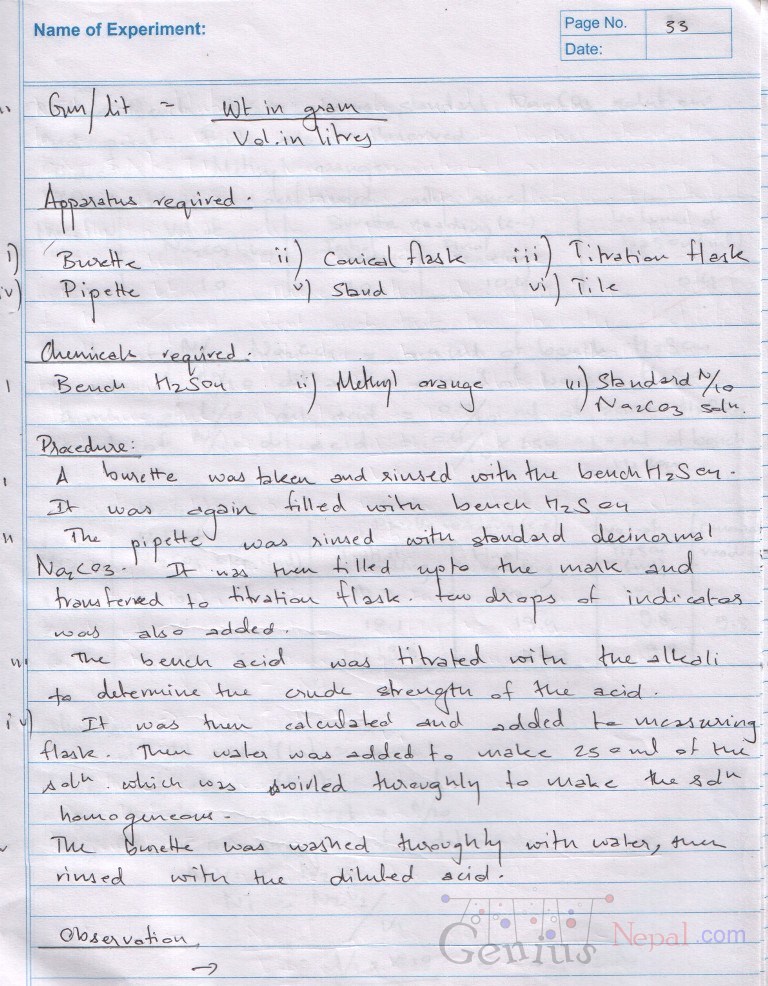 Name of Experiment:
Page No. 33
Date:
Gm/lit = Wt in gram
Vol. in litres
Apparatus required.
i) Burette ii) Conical flask iii) Titration flask
iv) Pipette v) Stand vi) Tile
Chemicals required.
i Bench H2SO4 ii) Methyl orange iii) Standard N/10
Na2CO3 soln.
Procedure:
A burette was taken and rinsed with the bench H2SO4.
It was again filled with bench H2SO4
The pipette was rinsed with standard decinormal
Na2CO3. It was then filled upto the mark and
transferred to titration flask. few drops of indicator
was also added.
The bench acid was titrated with the alkali
to determine the crude strength of the acid.
iv) It was then calculated and added to measuring
flask. Then water was added to make 250ml of the
soln. which was swirled throughly to make the soln
homogeneous.
The burette was washed throughly with water, then
rinsed with the diluted acid.
Observation,
→
Genius Nepal.com